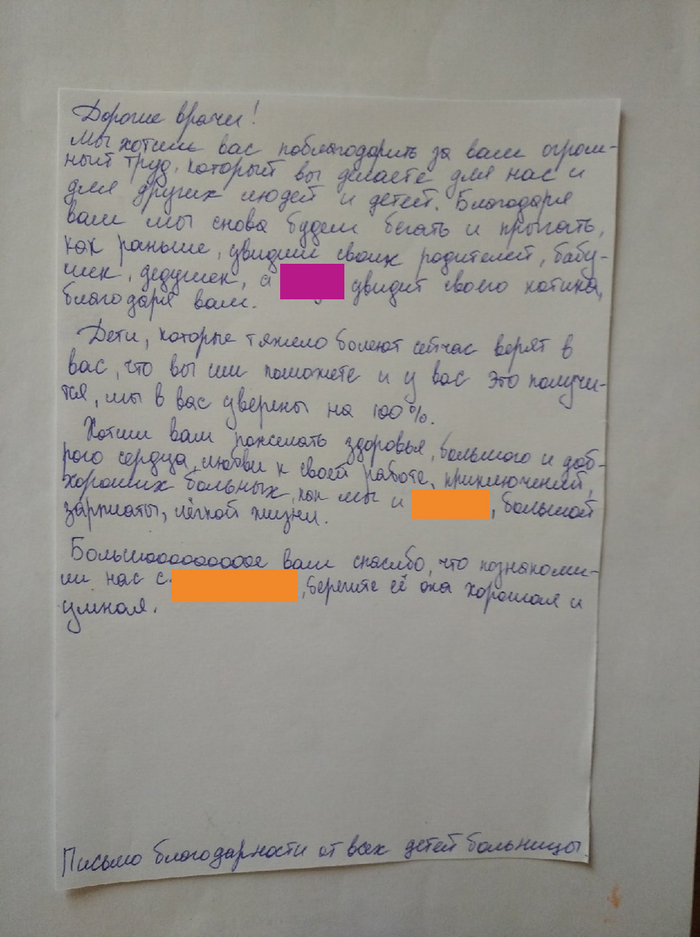 Дорогие врачи!
Мы хотим вас поблагодарить за ваш огром-
ный труд, который вы делаете для нас и
для других людей и детей. Благодаря
вам мы снова будем бегать и прыгать,
как раньше, увидим своих родителей, бабу-
шек, дедушек, а увидит своего котика,
благодаря вам.
Дети, которые тяжело болеют сейчас верят в
вас, что вы им поможете и у вас это получи-
тся, мы в вас уверены на 100%.
Хотим вам пожелать здоровья, большого и доб-
рого сердца, любви к своей работе, приключений,
хороших больных, как мы и , большой
зарплаты, лёгкой жизни.
Большооооооооое вам спасибо, что познакоми-
ли нас с , берегите её она хорошая и
умная.
Письмо благодарности от всех детей больницы